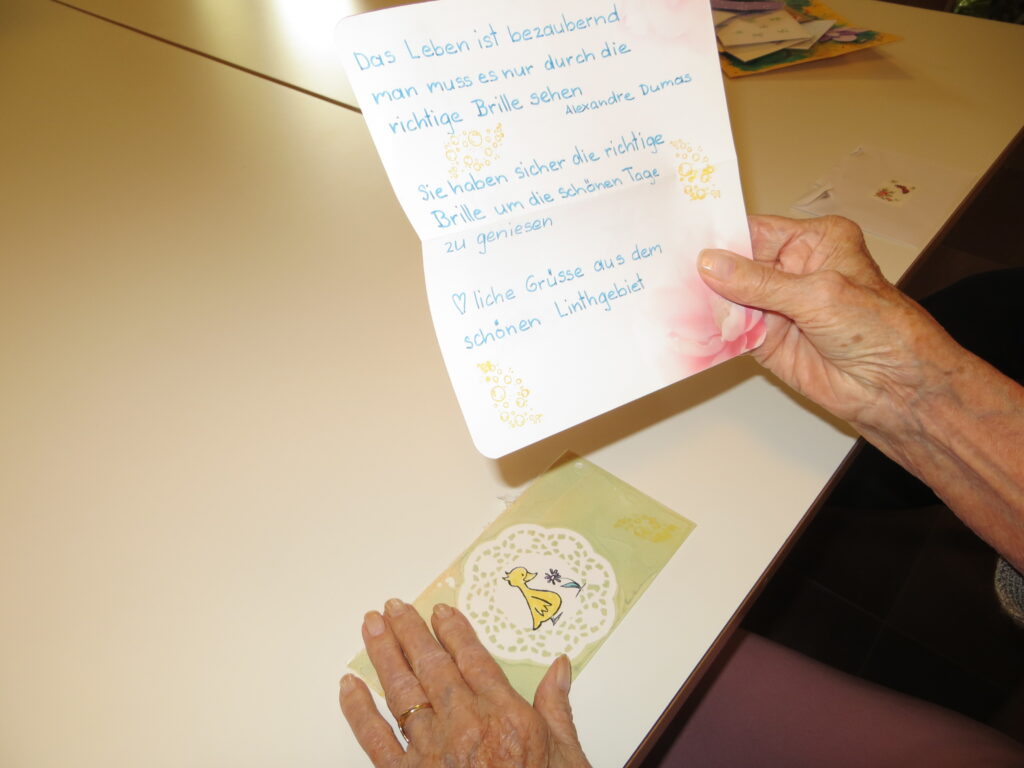 Das Leben ist bezaubernd
man muss es nur durch die
richtige Brille sehen
Alexandre Dumas
Sie haben sicher die richtige
Brille um die schönen Tage
zu geniesen
♡liche Grüsse aus dem
schönen Linthgebiet